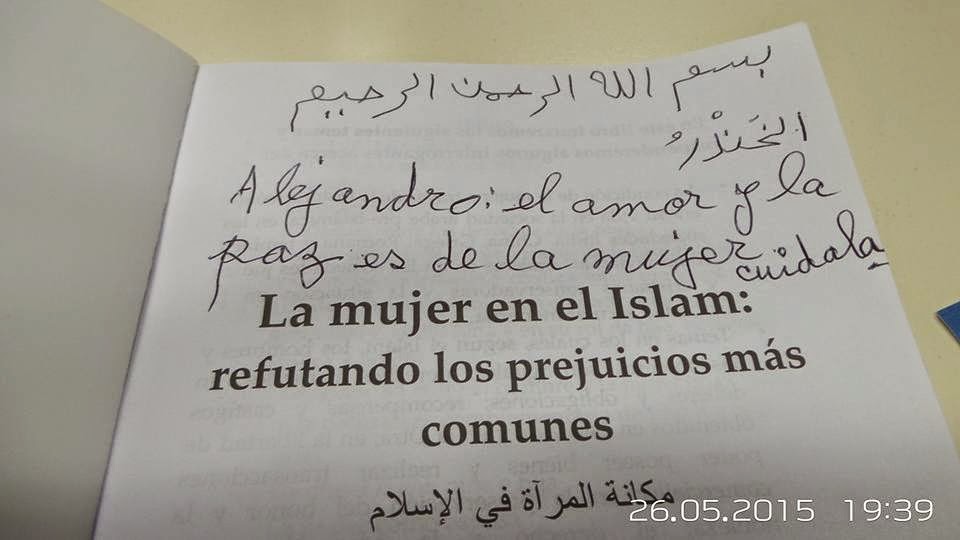 بسم الله الرحمن الرحيم
الخَنْدْرُ
Alejandro: el amor y la
paz es de la mujer cuidala
La mujer en el Islam:
refutando los prejuicios más
comunes
مكانة المرآة في الإسلام
26.05.2015 19:39